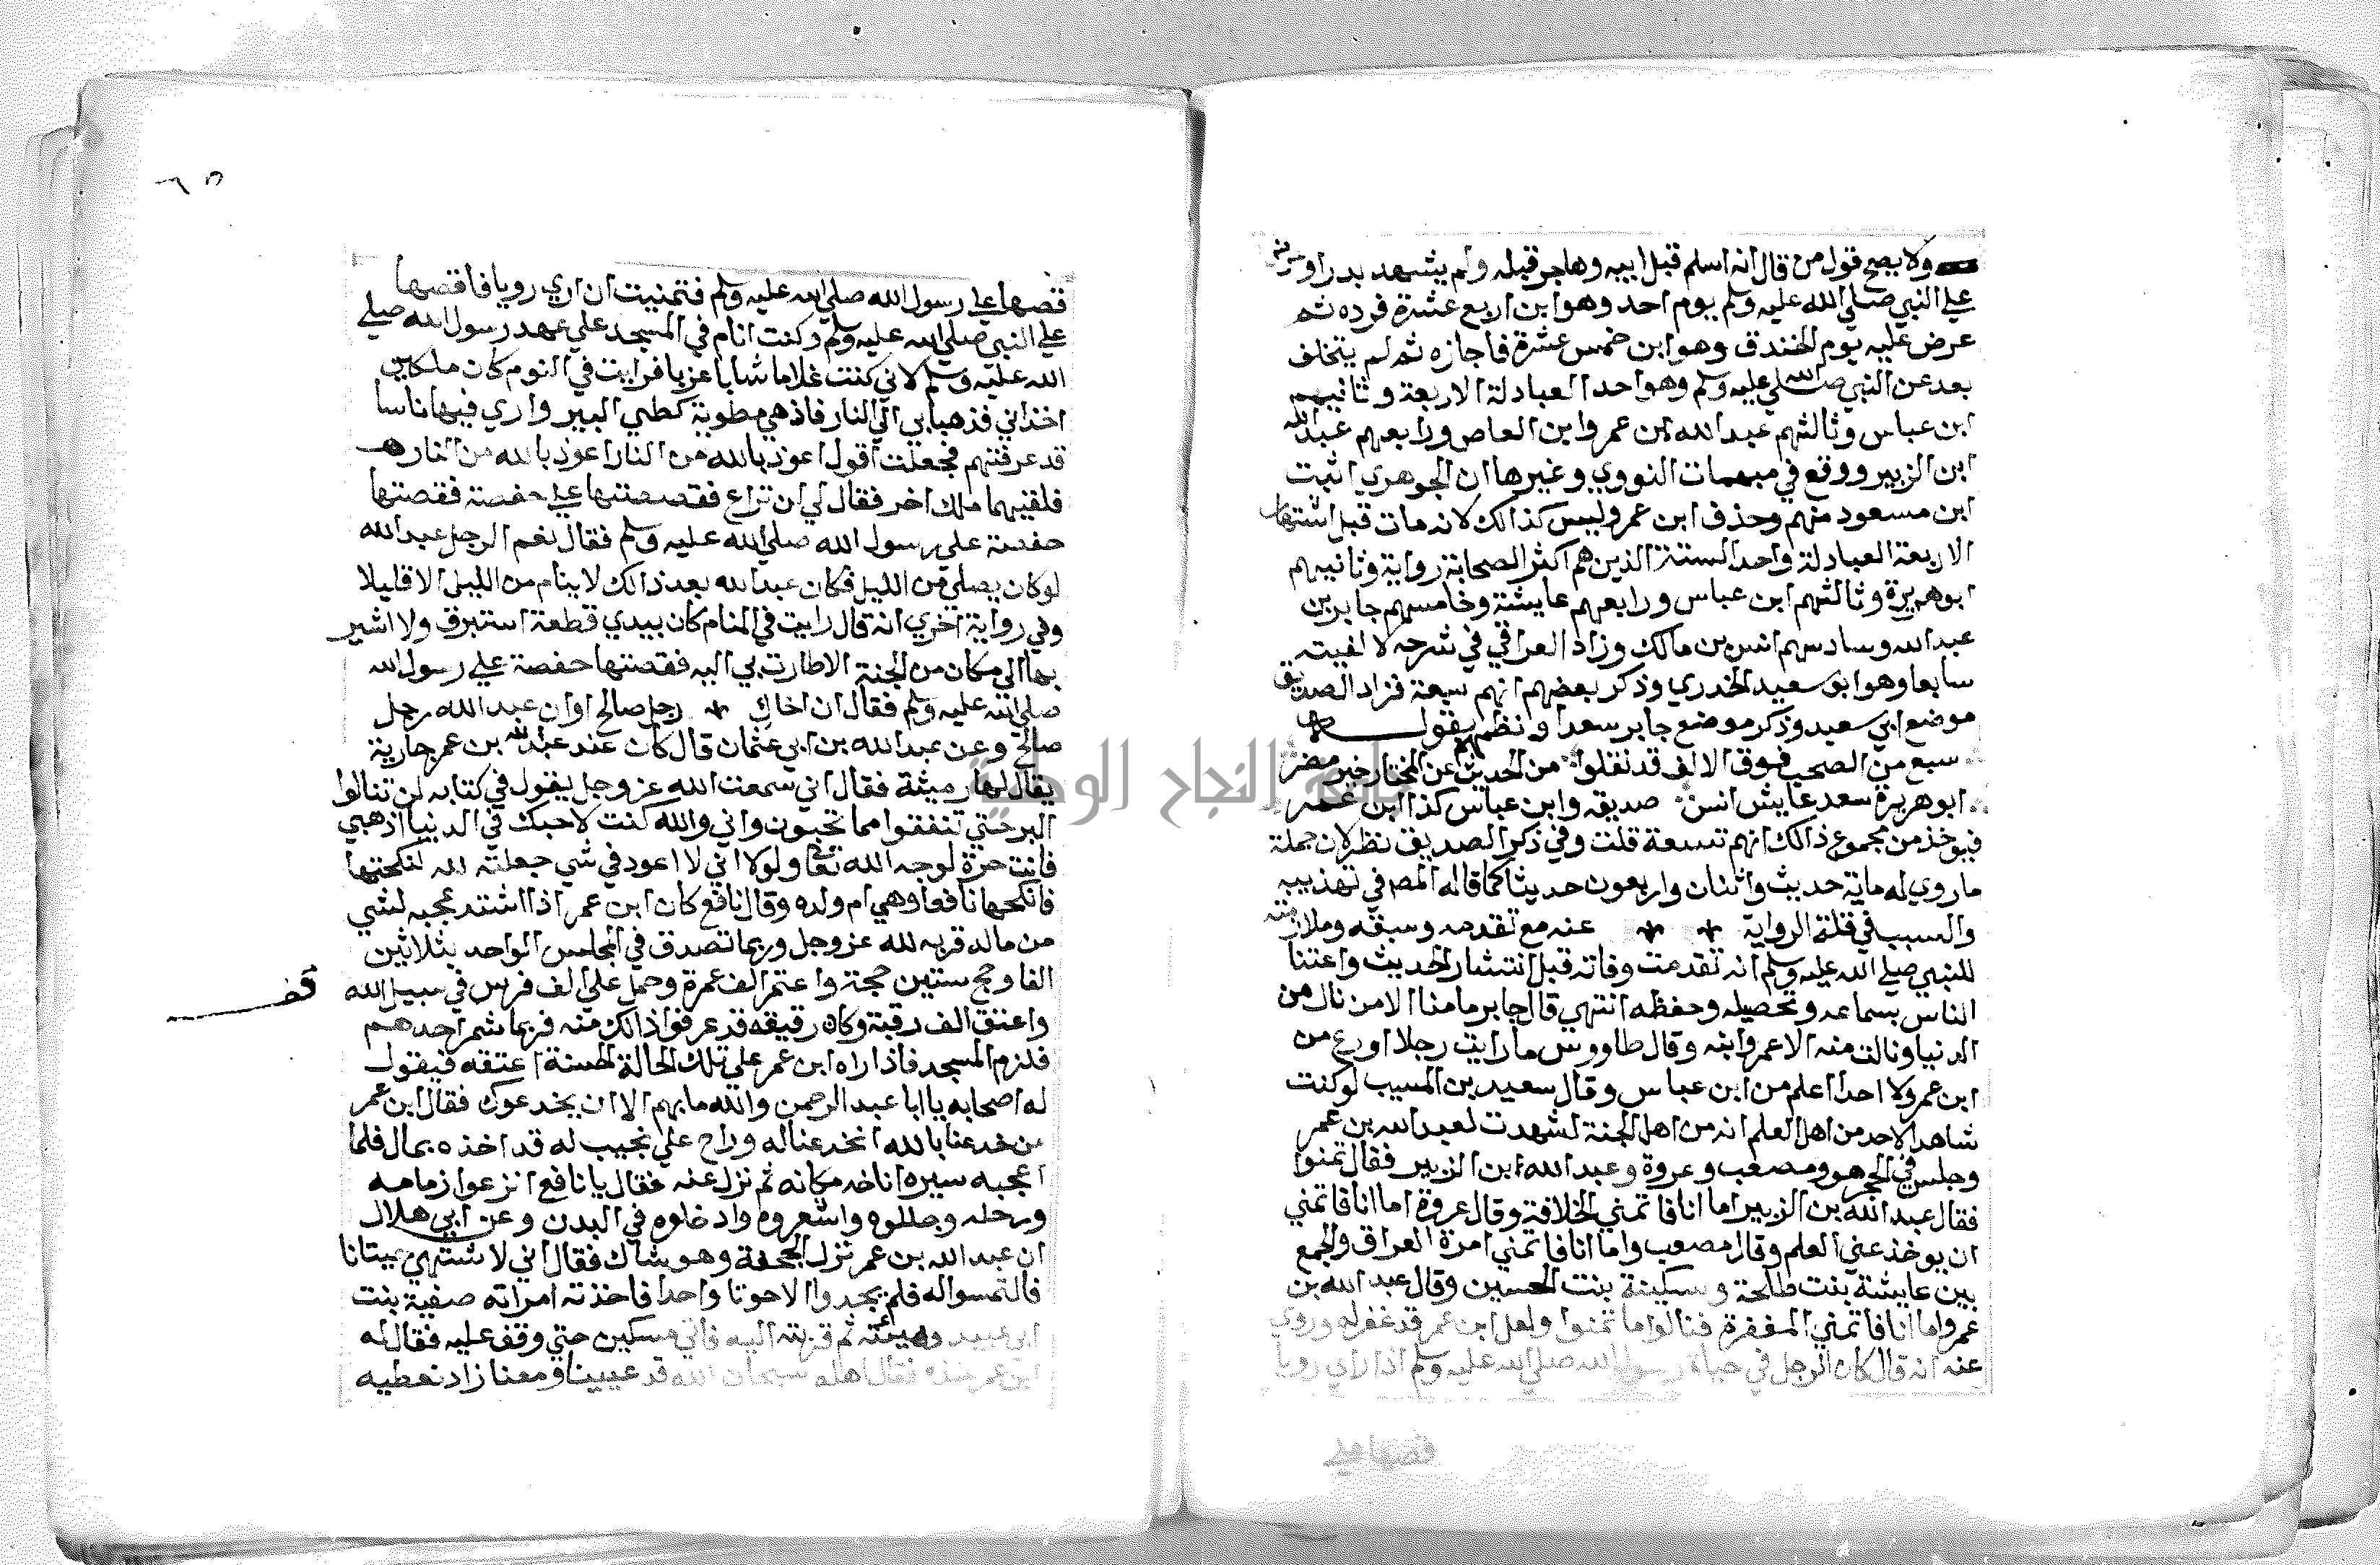 ولا يصح قول من قال انه اسلم قبل ابيه وهاجر قبله ولم يشهد بدرا وعرض
علي النبي صلي الله عليه وسلم يوم احد وهو ابن اربع عشرة فرده ثم
عرض عليه يوم الخندق وهو ابن خمس عشرة فاجازه ثم لم يتخلف
بعد عن النبي صلي الله عليه وسلم وهو احد العبادلة الاربعة وثانيهم
ابن عباس وثالثهم عبد الله ابن عمر وابن العاص ورابعهم عبد الله
ابن الزبير ووقع في مبهمات النووي وغيرها ان الجوهري اثبت
ابن مسعود منهم وحذف ابن عمر وليس كذالك لانه مات قبل اشتهار
الاربعة العبادلة واحد الستة الذين هم اكثر الصحابة رواية وثانيهم
ابو هريرة وثالثهم ابن عباس ورابعهم عايشة وخامسهم جابر بن
عبد الله وسادسهم انس بن مالك وزاد العراقي في شرحه لالفيته
سابعا وهو ابو سعيد الخدري وذكر بعضهم انهم سبعة فزاد الصديق
موضع ابي سعيد وذكر موضع جابر سعدا ونظم يقول
سبع من الصحب فوق الالف قد نقلوا من الحديث عن المختار خير مضر
ابو هريرة سعد عايش انس صديقه وابن عباس كذا ابن عمر
فيوخذ من مجموع ذالك انهم تسعة قلت وفي ذكر الصديق نظر لان جملة
ما روي له ماية حديث واثنان واربعون حديثا كما قاله المص في تهذيبه
والسبب في قلة الرواية عنه مع تقدمه وسبقه وملازمته
للنبي صلي الله عليه وسلم انه تقدمت وفاته قبل انتشار الحديث واعتنا
الناس بسماعه وتحصيله وحفظه انتهي قال جابر ما منا الا من نال من
الدنيا ونالت منه الا عمر وابنه وقال طاووس ما رايت رجلا اورع من
ابن عمر ولا احدا اعلم من ابن عباس وقال سعيد بن المسيب لو كنت
شاهدا لاحد من اهل العلم انه من اهل الجنة لشهدت لعبد الله بن عمر
وجلس في الحجر هو ومصعب وعروة وعبد الله ابن الزبير فقال تمنوا
فقال عبد الله بن الزبير اما انا فاتمني الخلافة وقال عروة اما انا فاتمني
ان يوخذ عني العلم وقال مصعب واما انا فاتمني امرة العراق والجمع
بين عايشة بنت طلحة وسكينة بنت الحسين وقال عبد الله بن
عمر واما انا فاتمني المغفرة فنالوا ما تمنوا ولعل ابن عمر قد غفر له وروي
عنه انه قال كان الرجل في حياة رسول الله صلي الله عليه وسلم اذا راي رويا
قصها علي
٦٥
قصها علي رسول الله صلي الله عليه وسلم فتمنيت ان اري رويا فاقصها
علي النبي صلي الله عليه وسلم وكنت انام في المسجد علي عهد رسول الله صلي
الله عليه وسلم لاني كنت غلاما شابا عزبا فرايت في النوم كان ملكين
اخذاني فذهبا بي الي النار فاذ هي مطوية كطي البير واري فيها ناسا
قد عرفتهم فجعلت اقول اعوذ بالله من النار اعوذ بالله من النار
فلقيهما ملك اخر فقال لي ان تراع فقصصتها علي حفصة فقصتها
حفصة علي رسول الله صلي الله عليه وسلم فقال نعم الرجل عبد الله
لو كان يصلي من الليل فكان عبد الله بعد ذالك لا ينام من الليل الا قليلا
وفي رواية اخري انه قال رايت في المنام كان بيدي قطعة استبرق ولا اشير
بها الي مكان من الجنة الا طارت بي اليه فقصتها حفصة علي رسول الله
صلي الله عليه وسلم فقال ان اخاك رجل صالح او ان عبد الله رجل
صالح وعن عبد الله بن ابي عثمان قال كان عند عبد الله بن عمر جارية
يقال لها رميثة فقال اني سمعت الله عز وجل يقول في كتابه لن تنالوا
البر حتي تنفقوا مما تحبون واني والله كنت لاحبك في الدنيا اذهبي
فانت حرة لوجه الله تعا ولولا اني لا اعود في شي جعلته لله لنكحتها
فانكحها نافعا وهي ام ولده وقال نافع كان ابن عمر اذا اشتد عجبه لشي
من ماله قربه لله عز وجل وربما تصدق في المجلس الواحد بثلاثين
الفا وحج ستين حجة واعتمر الف عمرة وحمل علي الف فرس في سبيل الله
قف
واعتق الف رقبة وكان رقيقه قد عرفوا ذالك منه فربما شمر احدهم
فلزم المسجد فاذا راه ابن عمر علي تلك الحالة الحسنة اعتقه فيقول
له اصحابه يا ابا عبد الرحمن والله ما بهم الا ان يخدعوك فقال ابن عمر
من خدعنا بالله انخدعنا له وراح علي نجيب له قد اخذه بمال فلما
اعجبه سيره اناخه مكانه ثم نزل عنه فقال يا نافع انزعوا زمامه
ورحله وجللوه واشعروه وادخلوه في البدن وعن ابي هلال
ان عبد الله بن عمر نزل الجحفة وهو شاك فقال اني لاشتهي حيتانا
فالتمسوا له فلم يجدوا الا حوتا واحدا فاخذته امراته صفية بنت
ابي عبيد وهيئته ثم قربته اليه فاتي مسكين حتي وقف عليه فقال له
ابن عمر خذه فقال اهله سبحان الله قد عييتنا ومعنا زاد نعطيه
جامعة النجاح الوطنية